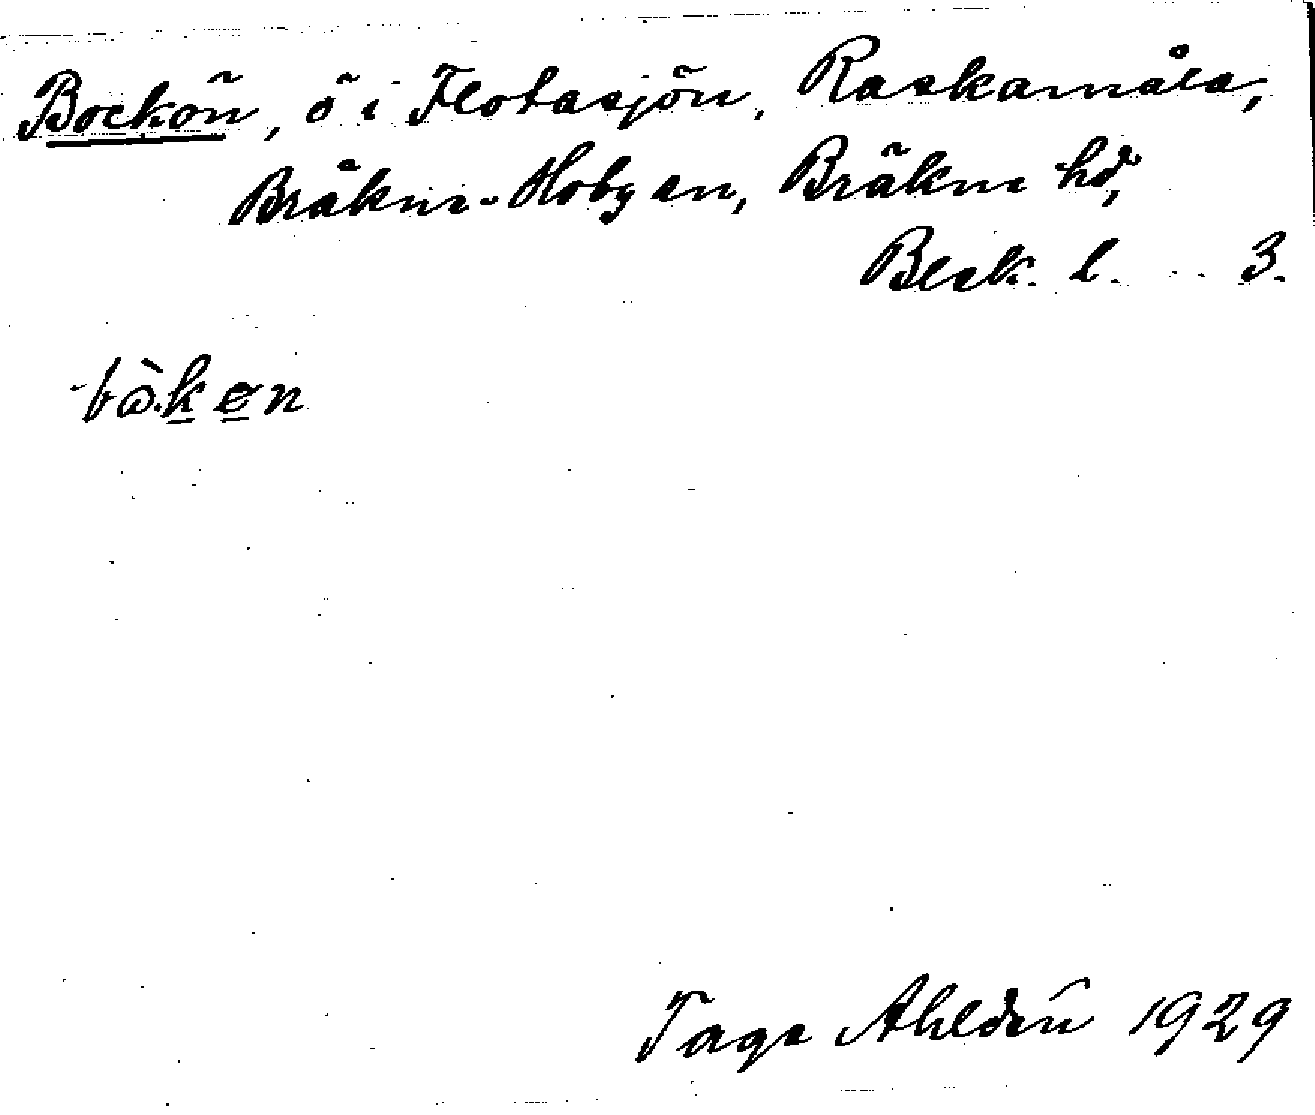 Bockön, ö i Flotasjön, Raskamåla,
Bräkne-Hoby sn, Bräkne hd,
Blek. l. 3.
bò.køn
Tage Ahldén 1929